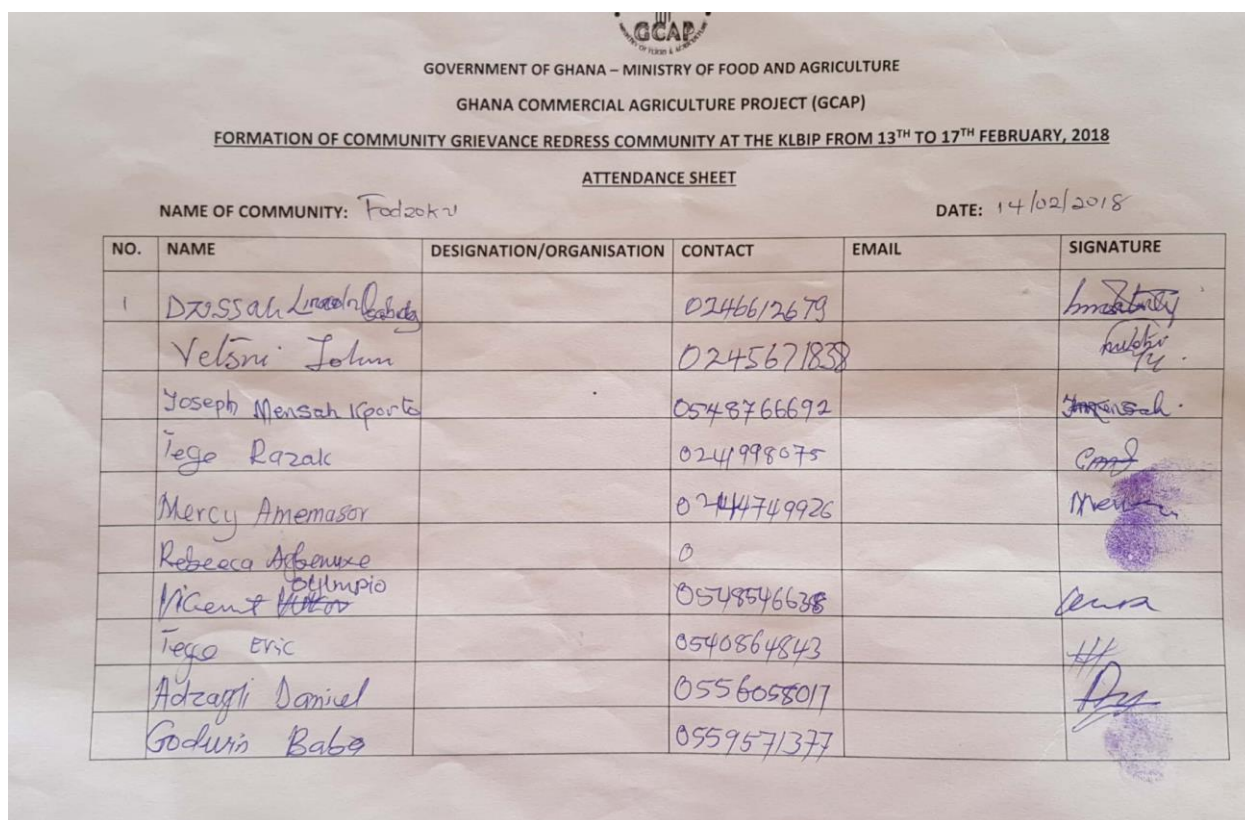 GCAP
MINISTRY OF FOOD & AGRICULTURE
GOVERNMENT OF GHANA – MINISTRY OF FOOD AND AGRICULTURE
GHANA COMMERCIAL AGRICULTURE PROJECT (GCAP)
FORMATION OF COMMUNITY GRIEVANCE REDRESS COMMUNITY AT THE KLBIP FROM 13TH TO 17TH FEBRUARY, 2018
ATTENDANCE SHEET
NAME OF COMMUNITY: Fodzoku DATE: 14/02/2018
NO. NAME DESIGNATION/ORGANISATION CONTACT EMAIL SIGNATURE
1 Dzissah Lincoln 0246612679
John 0245671838
Joseph Mensah Kporta 0548766692
Tege Razak 0241998075
Mercy Amemasor 0244749926
Rebecca 0
Olympio 0548546638
Tego Eric 0540864843
Adzagli Daniel 0556058017
Godwin Baba 0559571377